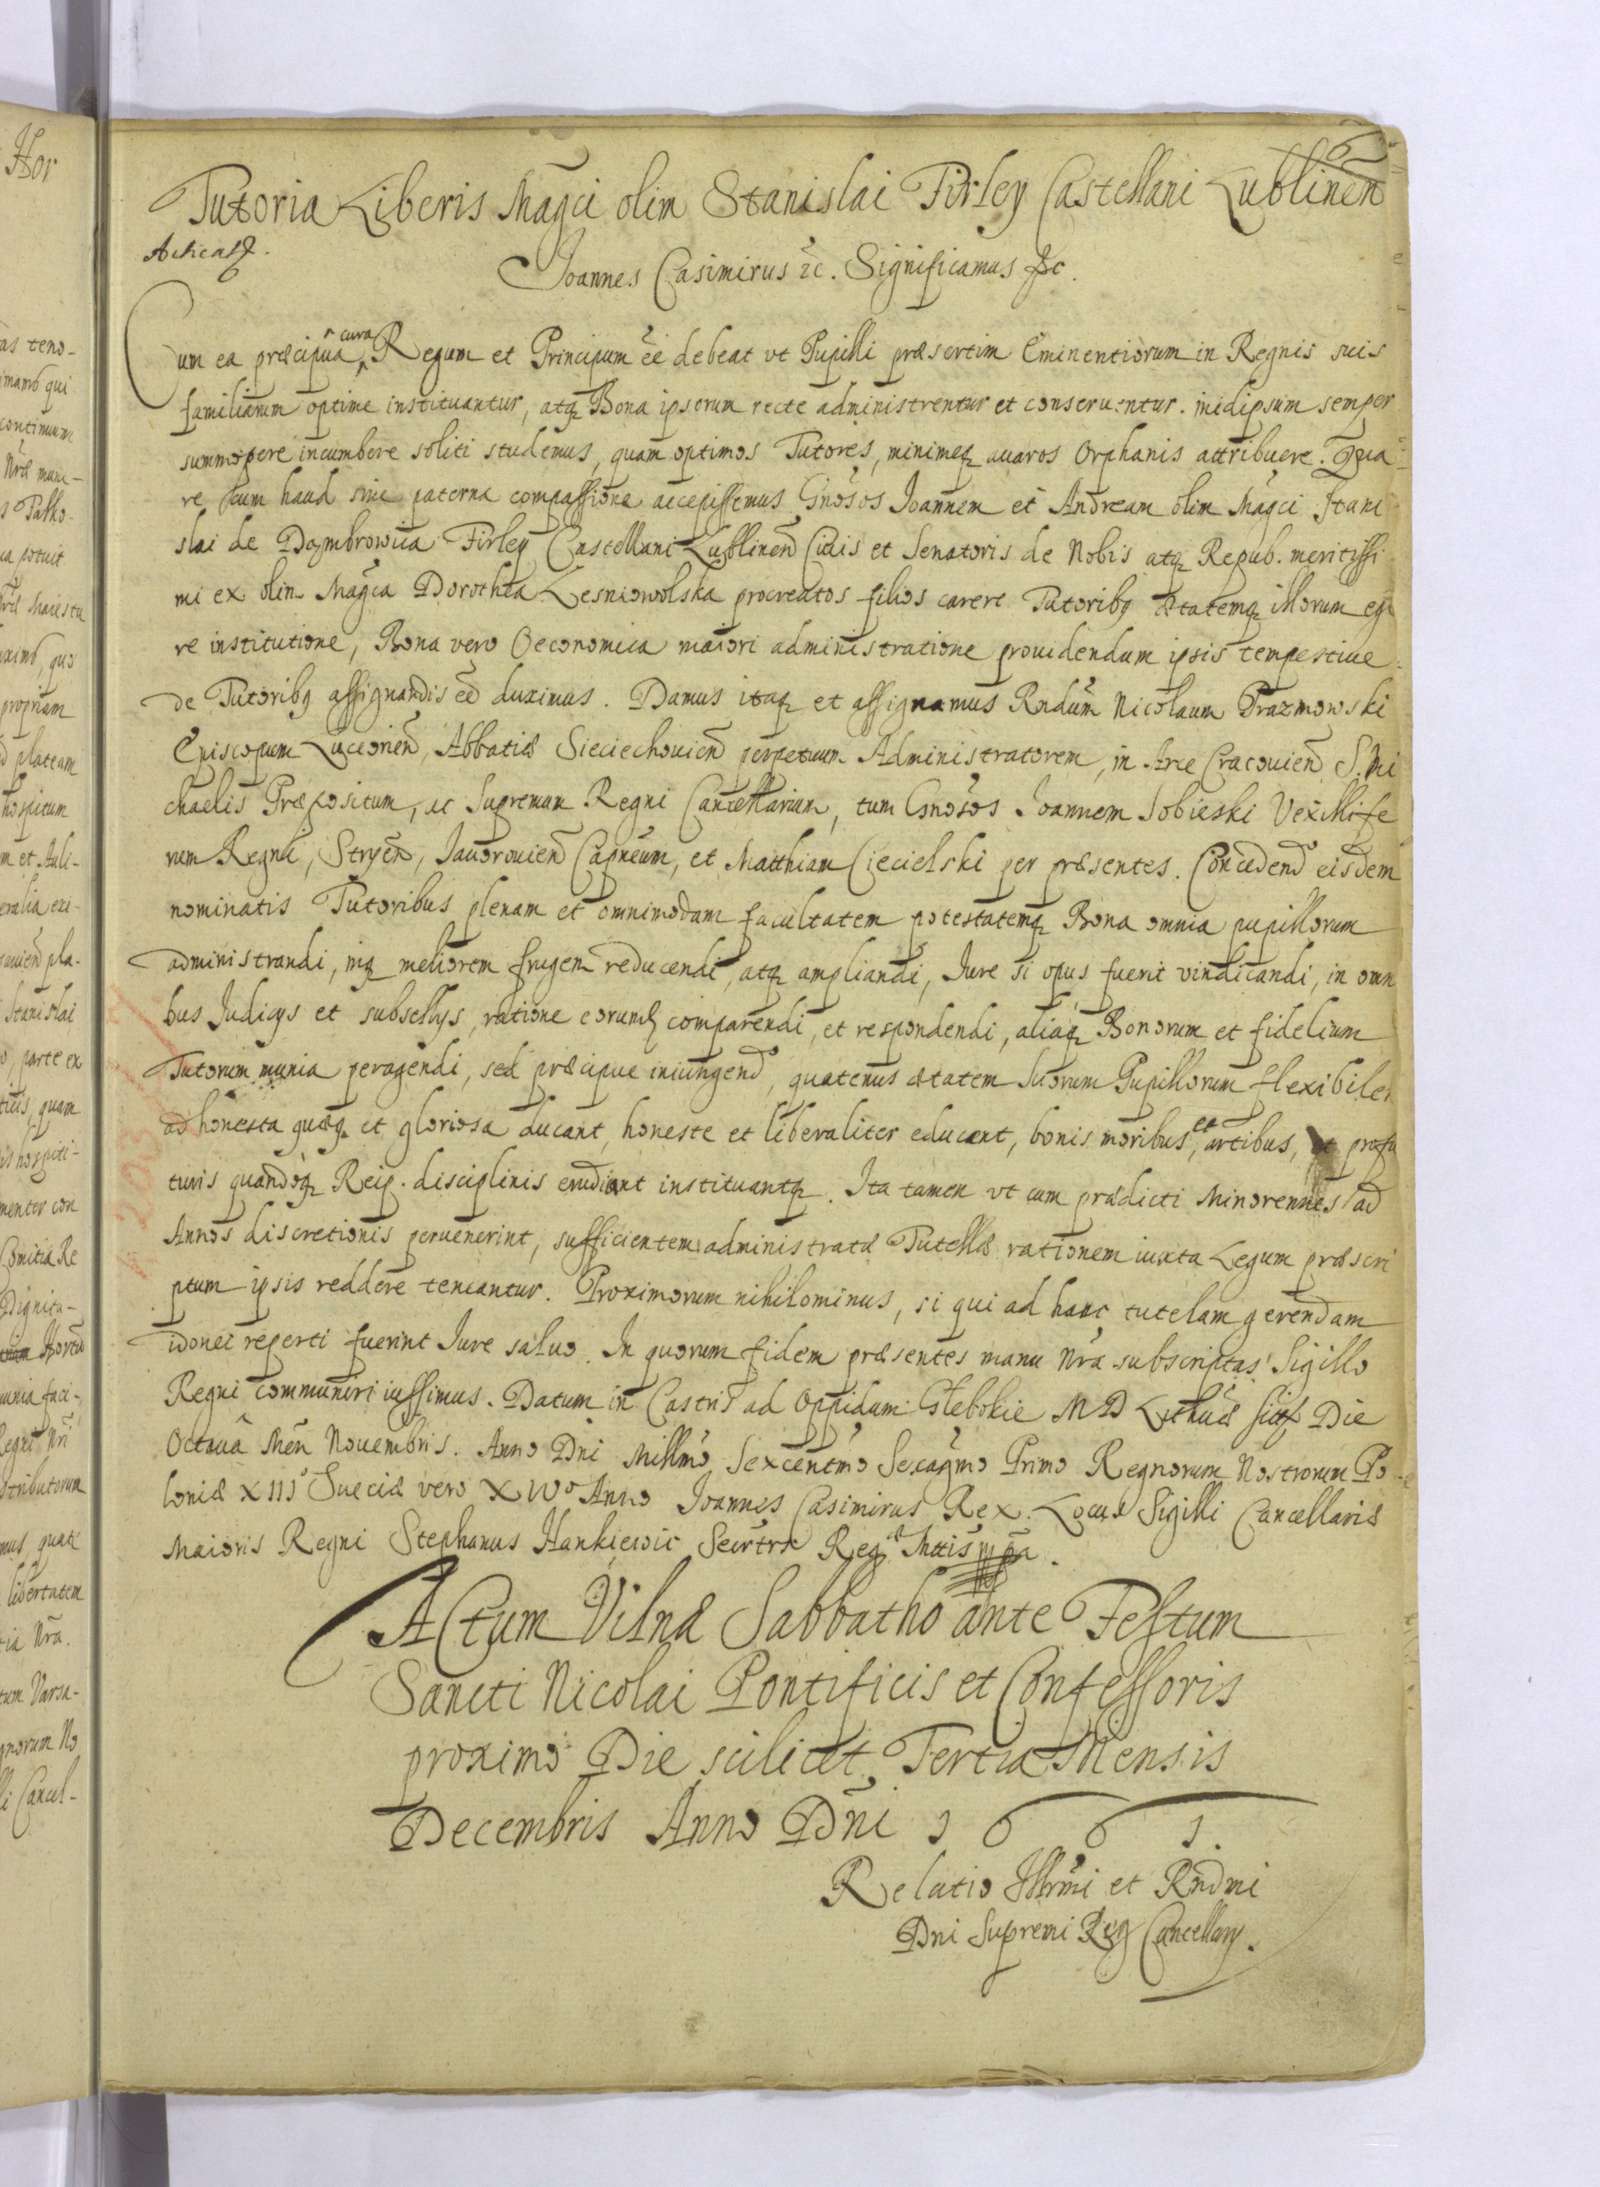 6
Tutoria Liberis Magci olim Stanislai Firley Castellani Lublinen
Joannes Casimirus etc. Significamus etc.
Cum ea præcipua cura Regum et Principum ēē debeat vt Pupilli præsertim Eminentiorum in Regnis suis
familiarum optime instituantur, atq Bona ipsorum recte administrentur et conseruentur. inidipsum semper
summopere incumbere soliti studemus, quam optimos Tutores, minimeq auaros Orphanis attribuere. Qua
re cum haud sine paterna compassione accepissemus Gnosos Joannem et Andream olim Magci Stani
slai de Dąmbrowica Firley Castellani Lublinen Ciuis et Senatoris de Nobis atq Repub. meritissi
mi ex olim Magca Dorothea Lesniowolska procreatos filios carere Tutoribq ætatemq illorum ege
re institutione, Bona vero Oeconomica maiori administratione prouidendum ipsis tempestiue
de Tutoribq assignandis eē duximus. Damus itaq et assignamus Rndūm Nicolaum Prazmowski
Episcopum Luceorien, Abbatiæ Sieciechouien perpetuum Administratorem, in Arce Cracouien S. Mi
chaelis Præpositum, ac Supremum Regni Cancellarium, tum Gnosos Joannem Sobieski Vexillife
rum Regni, Stryen, Jauorouien Capneum, et Matthiam Ciecielski per præsentes. Concedend eisdem
nominatis Tutoribus plenam et omnimodam facultatem potestatemq Bona omnia pupillorum
administrandi, inq meliorem frugem reducendi, atq ampliandi, Jure si opus fuerit vindicandi, in omni
bus Judicys et subsellys, ratione eorumq comparendi, et respondendi, aliaq Bonorum et fidelium
Tutorum munia peragendi, sed præcipue iniungend, quatenus ætatem Suorum Pupillorum flexibilem
ad honesta quæq et gloriosa ducant, honeste et liberaliter educent, bonis moribus, et artibus, profu
turis quandoq Reip. disciplinis erudiant instituantq. Ita tamen vt cum prædicti Minorennes ad
Annos discretionis peruenerint, sufficientem administratæ Tutellæ rationem iuxta Legum præscri
ptum ipsis reddere teneantur. Proximorum nihilominus, si qui ad hanc tutelam gerendam
idonei reperti fuerint Jure saluo. In quorum fidem præsentes manu Nra subscriptas Sigillo
Regni communiri iussimus. Datum in Castris ad Oppidum Głebokie M D Lithuæ Die
Octaua Men Nouembris. Anno Dni Millmo Sexcentmo Sexagmo Primo Regnorum Nostrorum Po
loniæ XIIIo Sueciæ vero XIVo Anno Joannes Casimirus Rex. Locus Sigilli Cancellariæ
Maioris Regni Stephanus Hankiewic Secrtrs Regæ Mttis mpa.
Actum Vilnæ Sabbatho ante Festum
Sancti Nicolai Pontificis et Confessoris
proximo Die scilicet Tertia Mensis
Decembris Anno Dni 1661.
Relatio Illrmi et Rndmi
Dni Supremi Reg Cancellary.